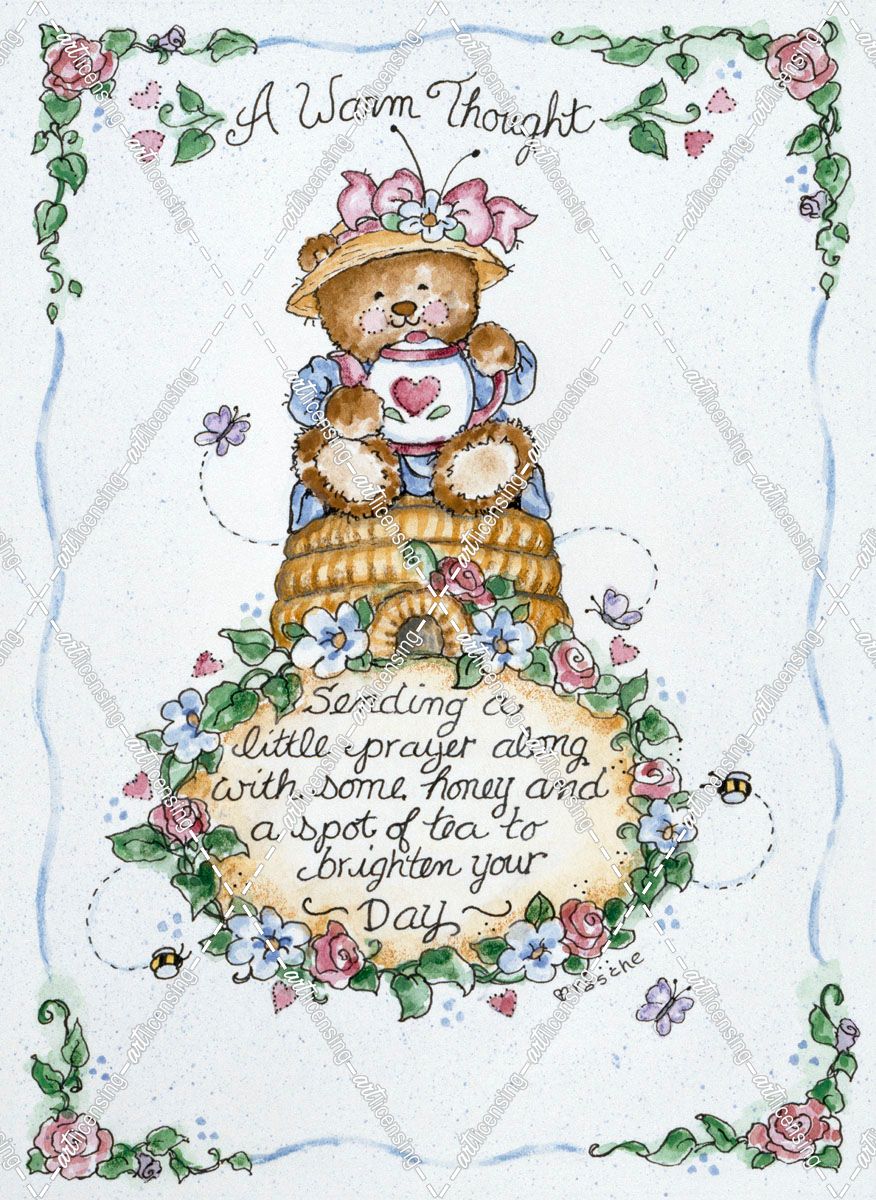 A Warm Thought
Sending a
little prayer along
with some honey and
a spot of tea to
brighten your
~ Day ~
artlicensing